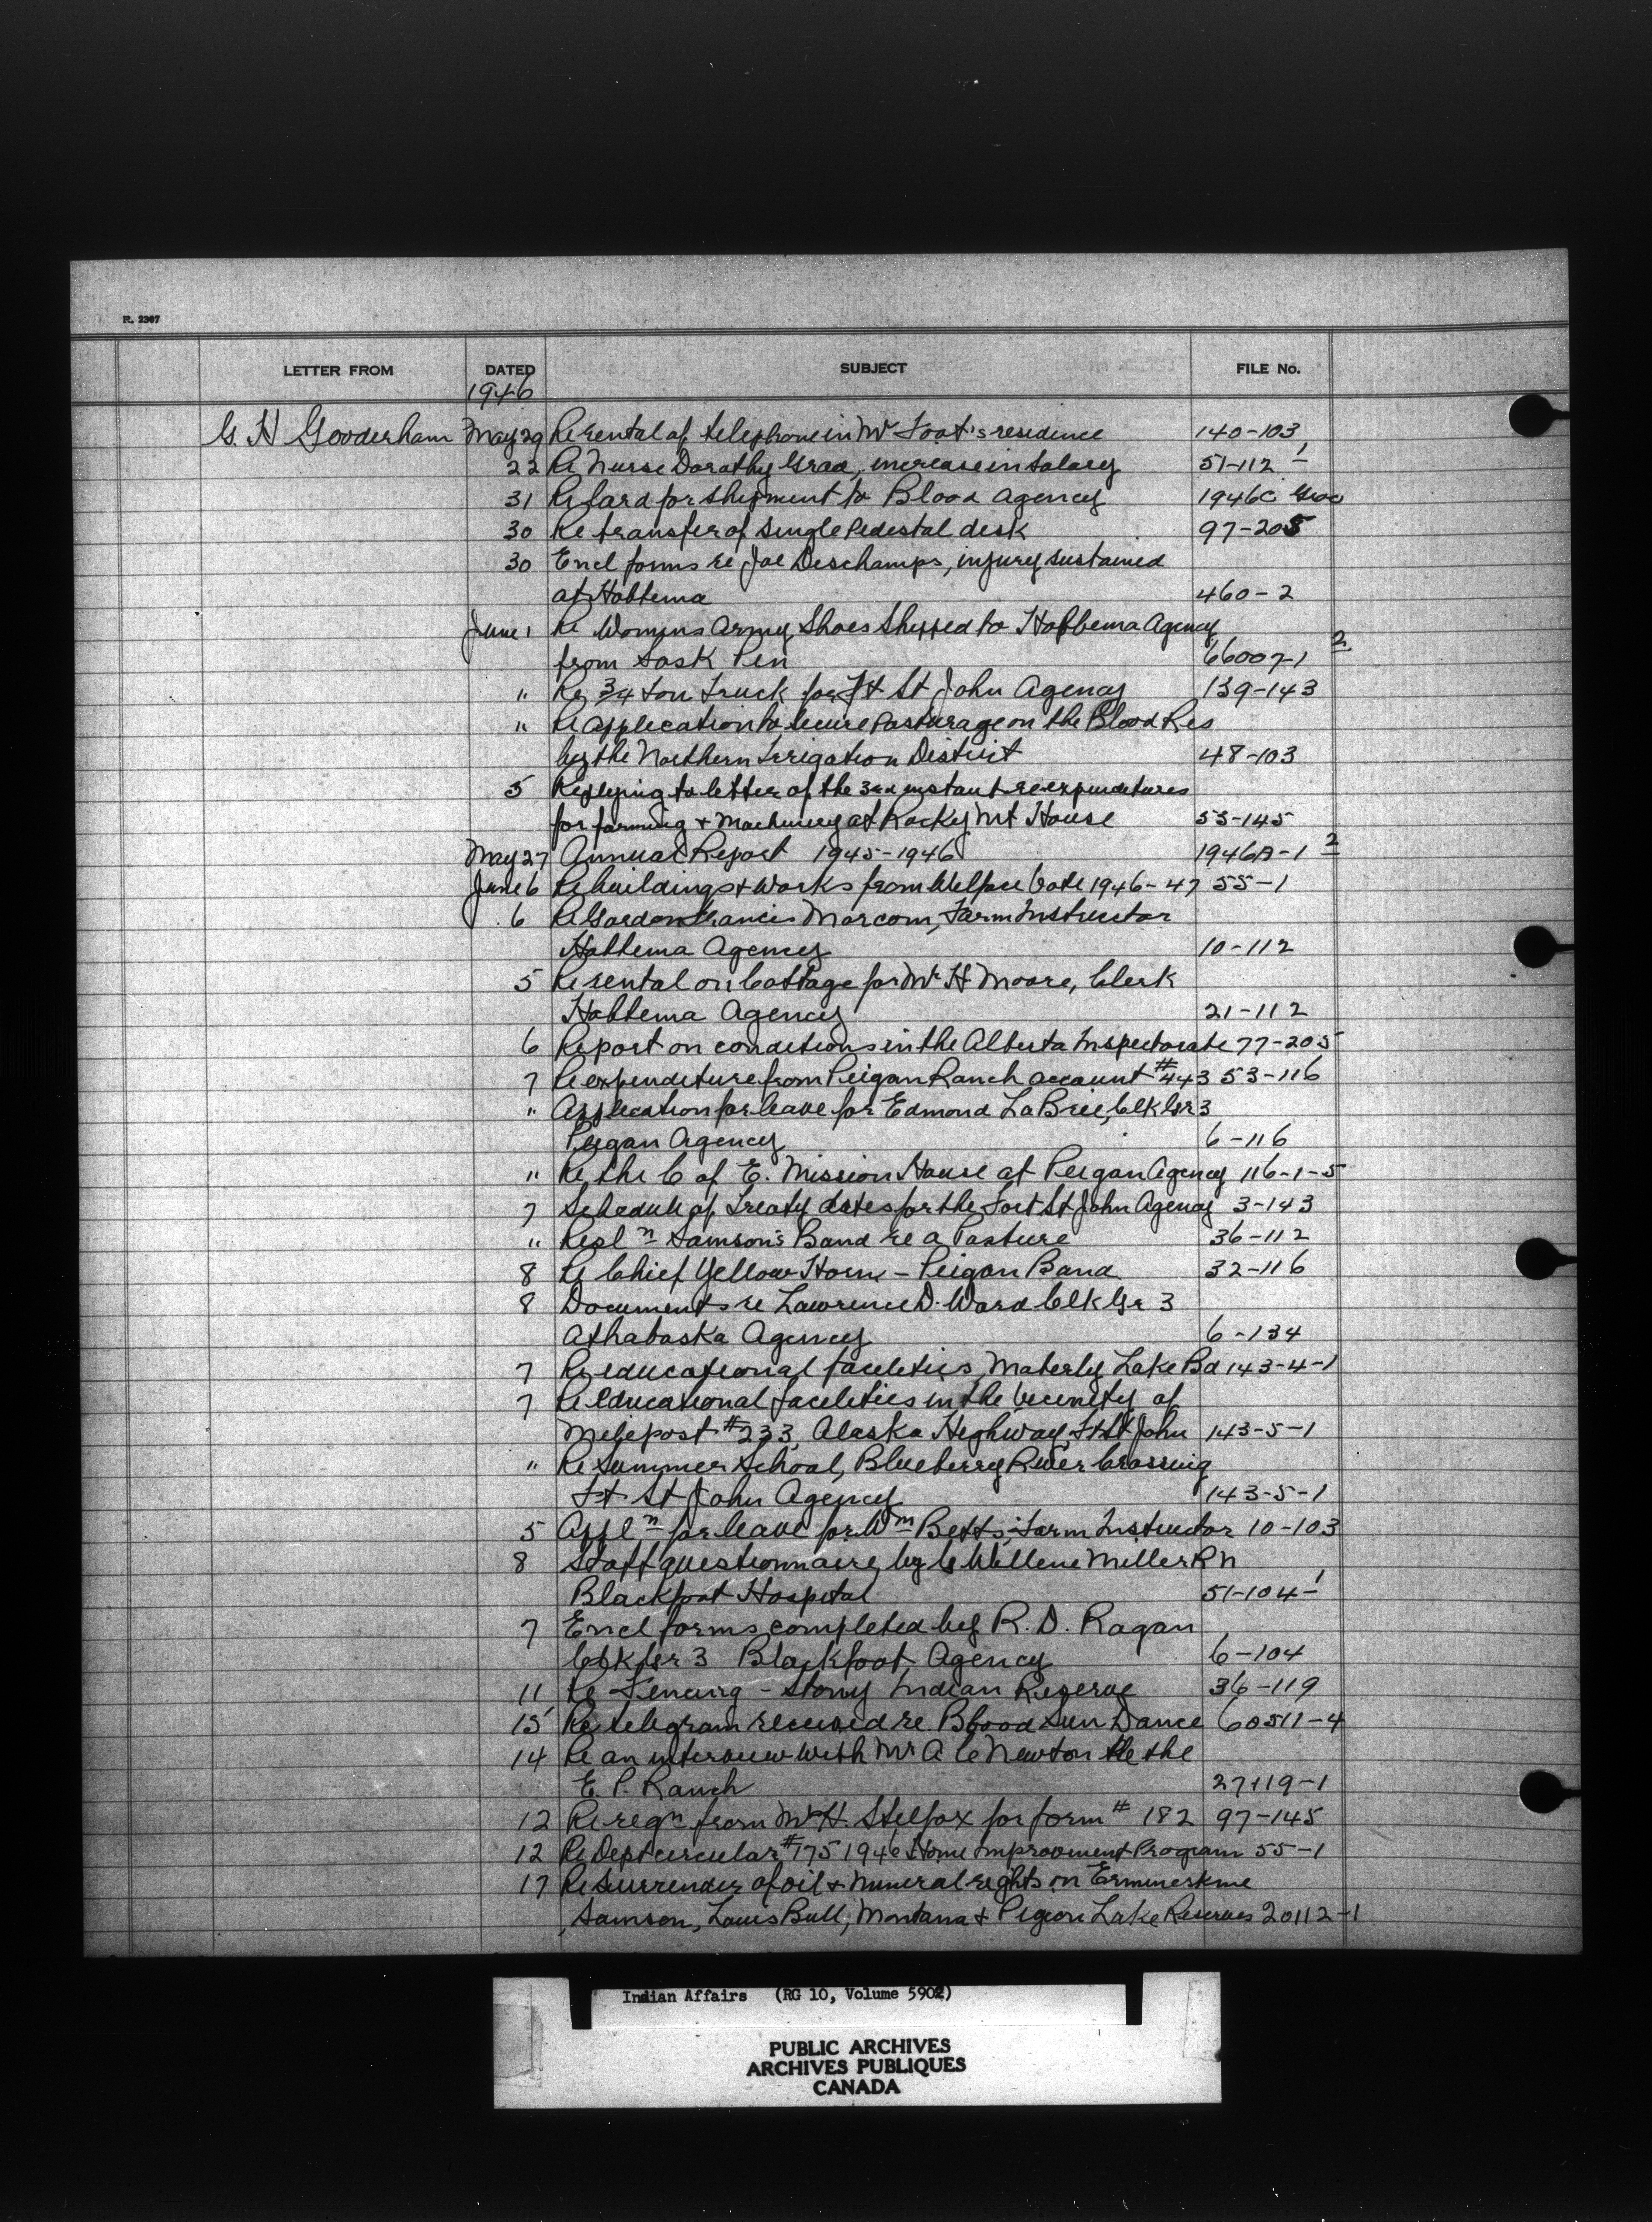 R. 2307
LETTER FROM DATED SUBJECT FILE No.
1946
G. H Gooderham May 29 Re rental of telephone in Mr Foot's residence 140-103
22 Re Nurse Dorathy Graa, increase in Salary 51-112-1
31 Re lard for shipment to Blood Agency 1946C Groc
30 Re transfer of single Pedestal desk 97-205
30 Encl forms re Joe Deschamps, injury sustained
at Hobbema 460-2
June 1 Re Womens Army Shoes Shipped to Hobbema Agency
from Sask Pen 66007-1 2
" Re 3/4 ton Truck for Ft St John Agency 139-143
" Re application to secure Pasturage on the Blood Res
by the Northern Irrigation District 48-103
5 Replying to letter of the 3rd instant re expenditures
for farming & Machinery at Rocky Mt House 53-145
May 27 Annual Report 1945-1946 1946A-1 2
June 6 Re buildings & Works from Welfare Vote 1946-47 55-1
6 Re Gordon Francis Marcom, Farm Instructor
Hobbema Agency 10-112
5 Re rental on Cottage for Mr H Moore, Clerk
Hobbema Agency 21-112
6 Report on conditions in the Alberta Inspectorate 77-205
7 Re expenditure from Peigan Ranch account #443 53-116
" Application for leave for Edmond LaBrie, Clk Gr 3
Peigan Agency 6-116
" Re the C of E. Mission House at Peigan Agency 116-1-5
7 Schedule of Treaty dates for the Fort St John Agency 3-143
" Resl n Samson's Band re a Pasture 36-112
8 Re Chief Yellow Horn - Peigan Band 32-116
8 Documents re Lawrence D. Ward Clk Gr 3
Athabaska Agency 6-134
7 Re educational facilities, Moberly Lake Bd 143-4-1
7 Re Educational facilities in the vicinity of
Milepost #233, Alaska Highway, Ft St John 143-5-1
" Re Summer School, Blueberry River Crossing
Ft St John Agency 143-5-1
5 Appl n for leave for Wm Betts, Farm Instructor 10-103
8 Staff questionnaire by C Willene Miller RN
Blackfoot Hospital 51-104-1
7 Encl forms completed by R. D. Ragan
Clk Gr 3 Blackfoot Agency 6-104
11 Re Fencing - Stony Indian Reserve 36-119
15 Re telegram received re Blood Sun Dance 60511-4
14 Re an interview with Mr A C Newton the
E. P. Ranch 27119-1
12 Re reqn from Mr H. Stelfox for form # 182 97-145
12 Re Dept circular #175 1946 Home Improvement Program 55-1
17 Re Surrender of oil & mineral rights on Ermineskine
Samson, Louis Bull, Montana & Pigeon Lake Reserves 20112-1
Indian Affairs (RG 10, Volume 5902)
PUBLIC ARCHIVES
ARCHIVES PUBLIQUES
CANADA